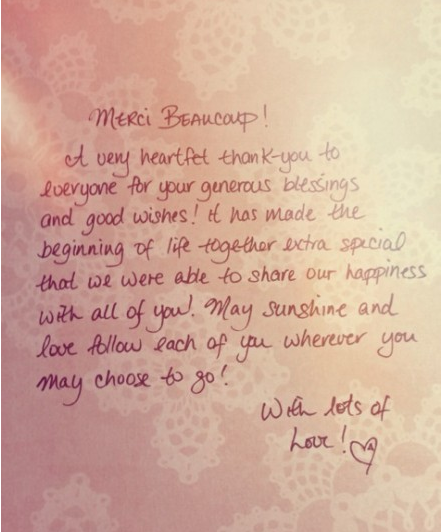 Merci Beaucoup!
A very heartfet thank-you to
everyone for your generous blessings
and good wishes! It has made the
beginning of life together extra special
that we were able to share our happiness
with all of you! May sunshine and
love follow each of you wherever you
may choose to go!
With lots of
Love!